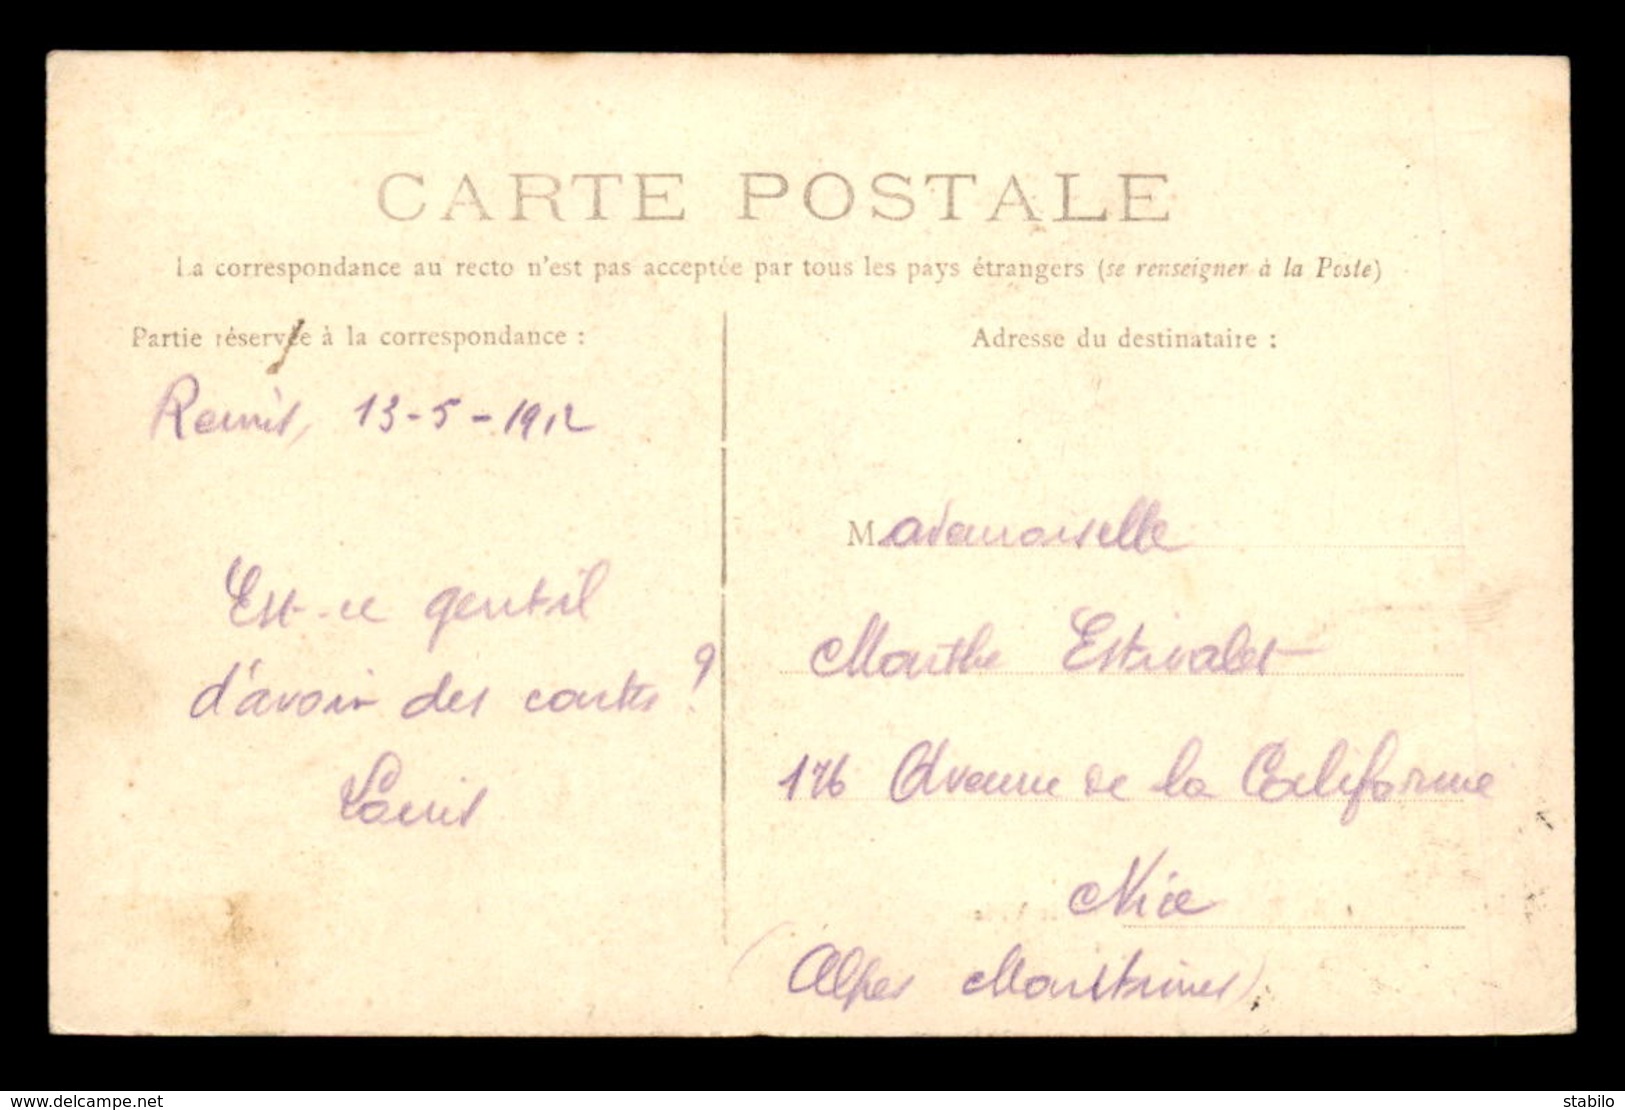 CARTE POSTALE
La correspondance au recto n'est pas acceptée par tous les pays étrangers (se renseigner à la Poste)
Partie réservée à la correspondance :
13-5-1912
Est-ce gentil
d'avoir des cartes ?
Louis
Adresse du destinataire :
Mademoiselle
Marthe Estivalet
176 Avenue de la Californie
Nice
(Alpes Maritimes)
www.delcampe.net
stabilo